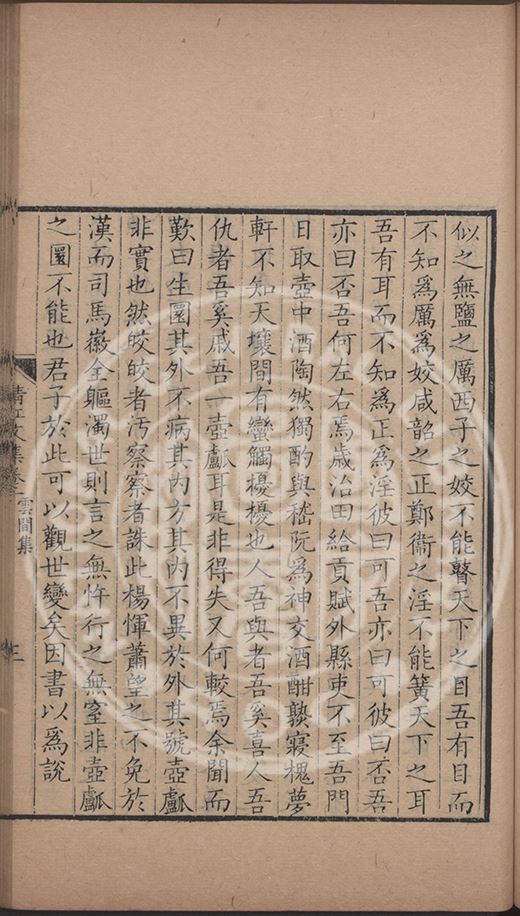 似之無鹽之厲西子之姣不能瞽天下之目吾有目而
不知為厲為姣咸韶之正鄭衞之淫不能簧天下之耳
吾有耳而不知為正為淫彼曰可吾亦曰可彼曰否吾
亦曰否吾何左右焉歲治田給貢賦外縣吏不至吾門
日取壺中酒陶然獨酌與嵇阮為神交酒酣熟寢槐夢
軒不知天壤間有蠻觸擾擾也人吾與者吾奚喜人吾
仇者吾奚戚吾一壺甗耳是非得失又何較焉余聞而
歎曰生圜其外不病其內方其內不異於外其號壺甗
非實也然皎皎者汚察察者誅此楊惲蕭望之不免於
漢而司馬徽全軀濁世則言之無忤行之無窒非壺甗
之圜不能也君子於此可以觀世變矣因書以為說
清江文集卷一 雲間集